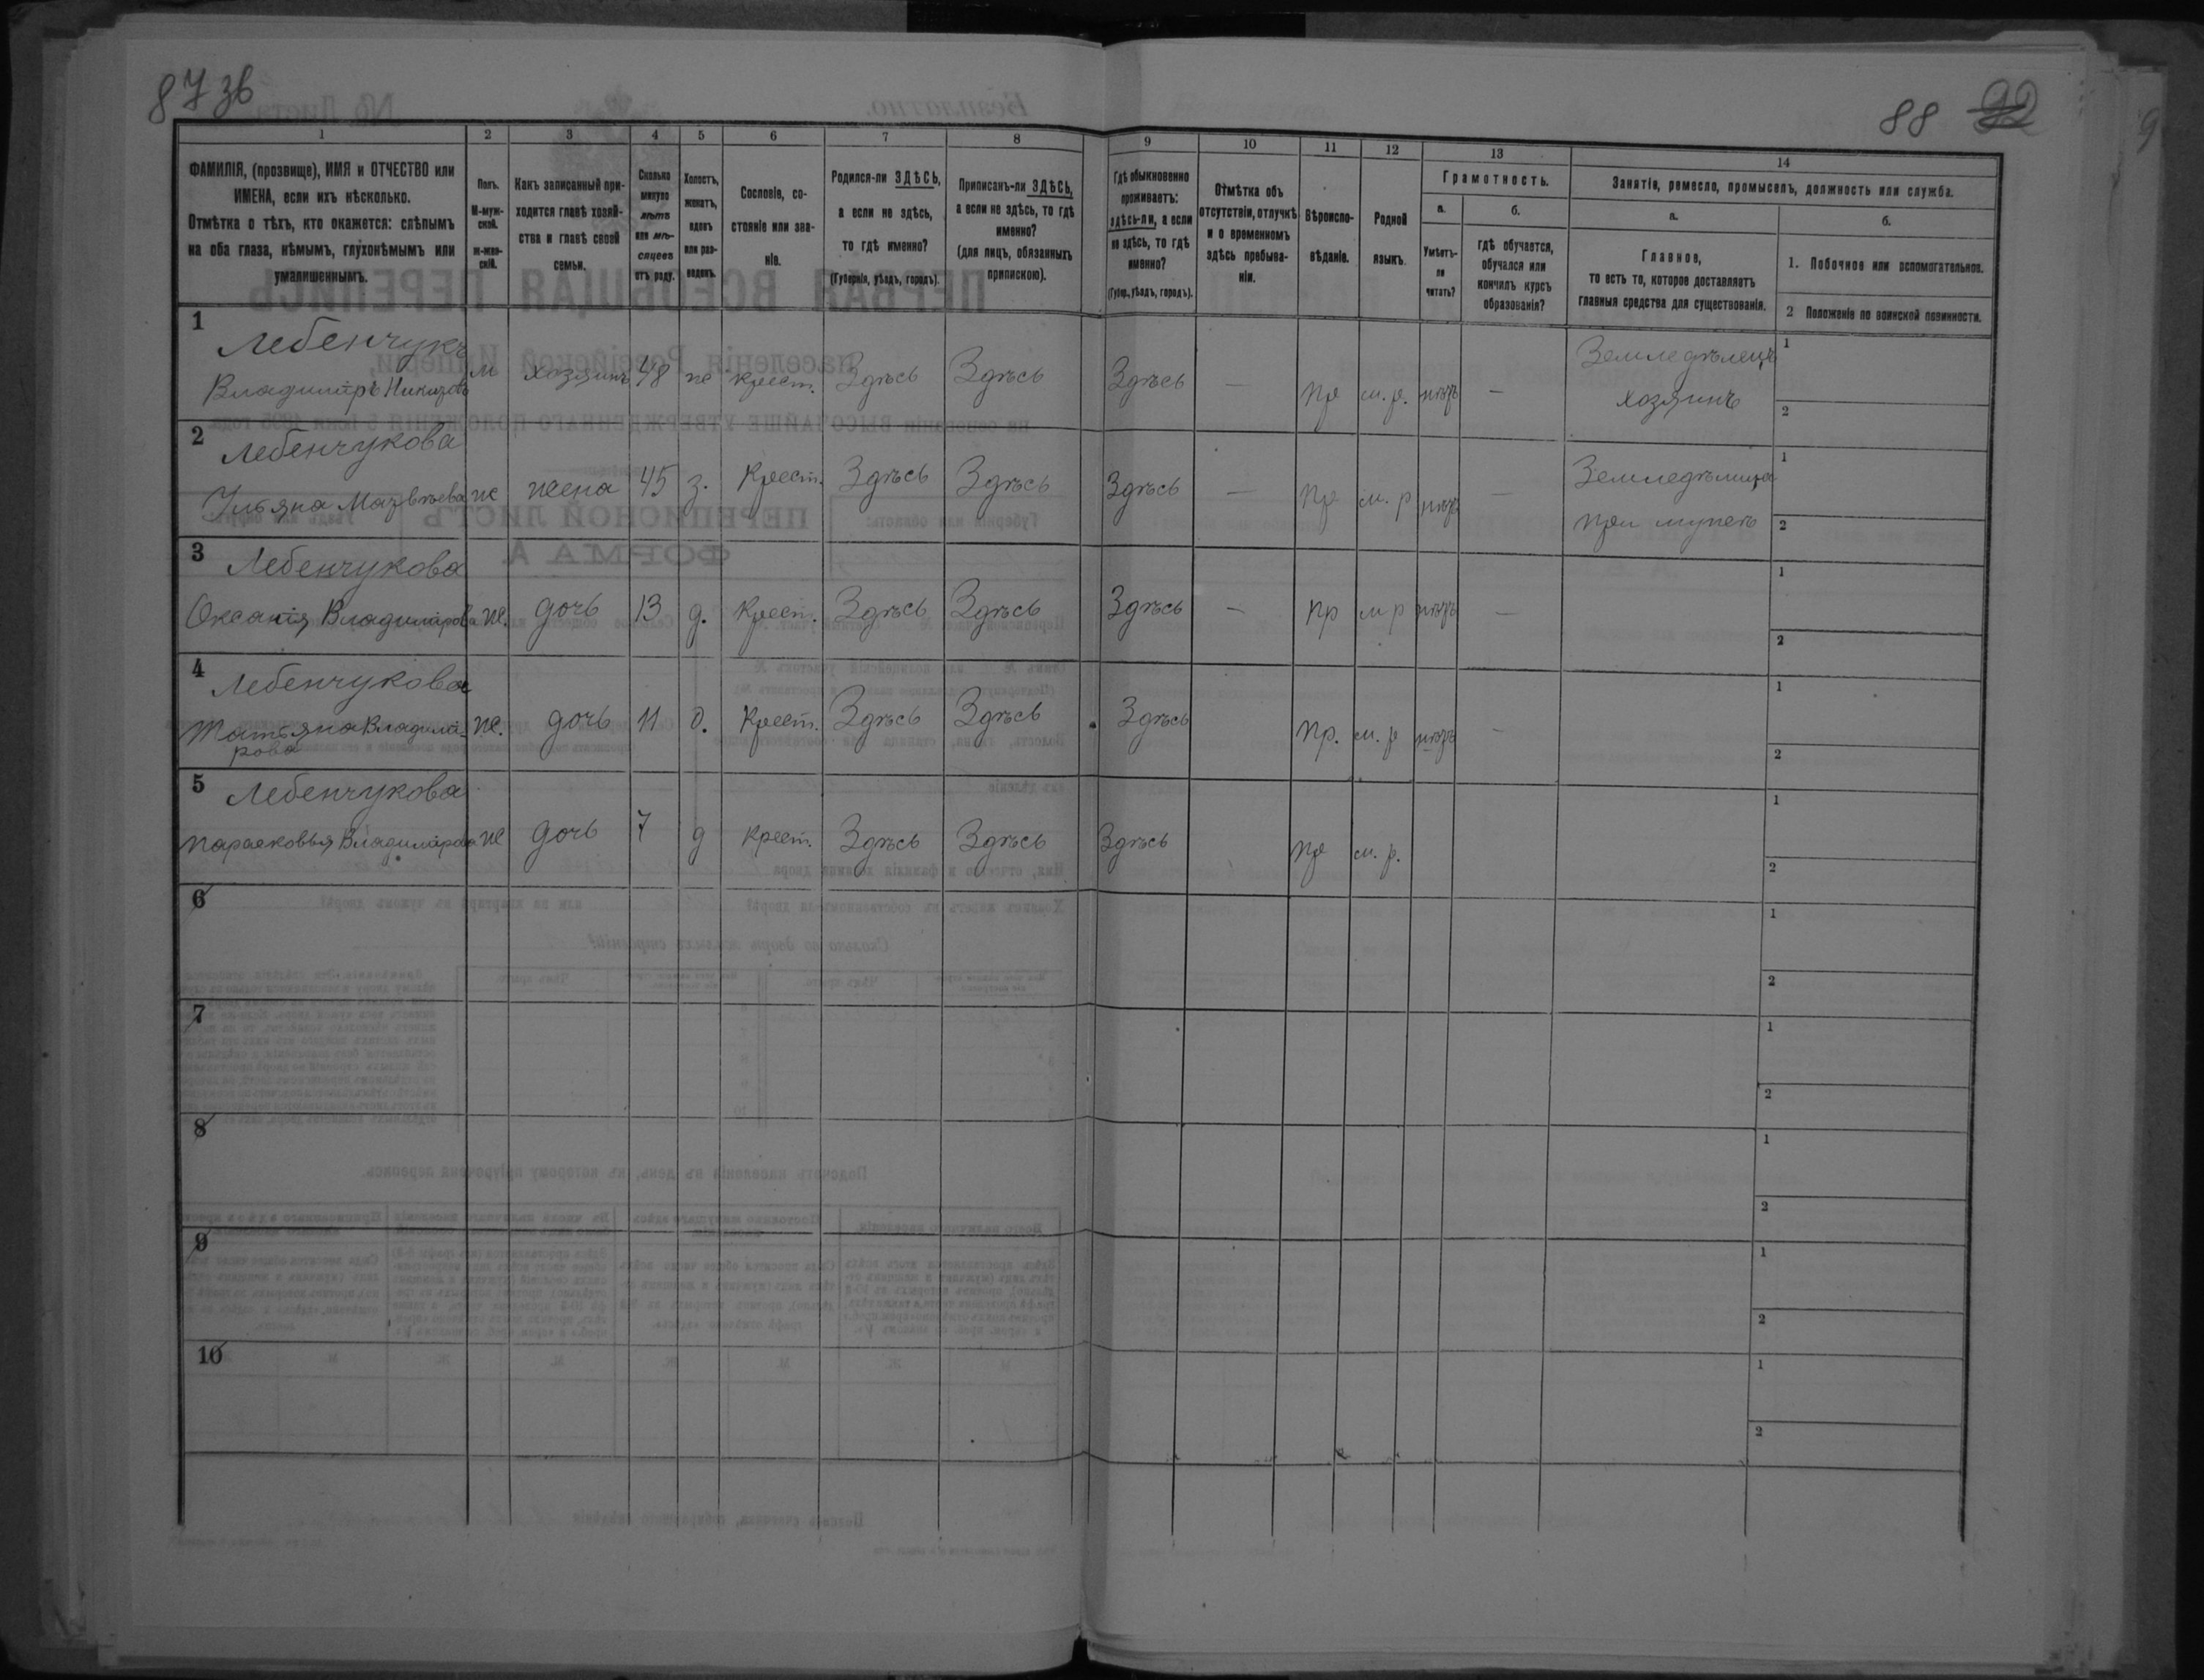 87 зв
88 92
1 2 3 4 5 6 7 8 9 10 11 12 13 14
ФАМИЛІЯ, (прозвище), ИМЯ и ОТЧЕСТВО или
ИМЕНА, если ихъ нѣсколько.
Отмѣтка о тѣхъ, кто окажется: слѣпымъ
на оба глаза, нѣмымъ, глухонѣмымъ или
умалишеннымъ.
Полъ.
М-муж-
ской.
ж-жен-
скій.
Какъ записанный при-
ходится главѣ хозяй-
ства и главѣ своей
семьи.
Сколько
минуло
лѣтъ
или мѣ-
сяцевъ
отъ роду.
Холостъ,
женатъ,
вдовъ
или раз-
веденъ.
Сословіе, со-
стояніе или зва-
ніе.
Родился-ли ЗДѢСЬ,
а если не здѣсь,
то гдѣ именно?
(Губернія, уѣздъ, городъ).
Приписанъ-ли ЗДѢСЬ,
а если не здѣсь, то гдѣ
именно?
(для лицъ, обязанныхъ
припискою).
Гдѣ обыкновенно
проживаетъ:
здѣсь-ли, а если
не здѣсь, то гдѣ
именно?
(Губер., уѣздъ, городъ).
Отмѣтка объ
отсутствіи, отлучкѣ
и о временномъ
здѣсь пребыва-
ніи.
Вѣроиспо-
вѣданіе.
Родной
языкъ.
Грамотность.
а.
Умѣетъ-
ли
читать?
б.
гдѣ обучается,
обучался или
кончилъ курсъ
образованія?
Занятіе, ремесло, промыселъ, должность или служба.
а.
Главное,
то есть то, которое доставляетъ
главныя средства для существованія.
б.
1. Побочное или вспомогательное.
2 Положеніе по воинской повинности.
1 Лебенчукъ Земледѣлецъ 1
Владиміръ м хозяинъ 48 ж крест. Здѣсь Здѣсь Здѣсь — пр м. р. нѣтъ — хозяинъ 2
2 Лебенчукова Земледѣлица 1
Ульяна Матвѣева ж жена 45 з. Крест. Здѣсь Здѣсь Здѣсь — пр м. р нѣтъ — при мужѣ 2
3 Лебенчукова 1
Оксанія Владимірова ж. дочь 13 д. Крест. Здѣсь Здѣсь Здѣсь — пр м р нѣтъ — 2
4 Лебенчукова 1
Татьяна Владимі- ж. дочь 11 д. Крест. Здѣсь Здѣсь Здѣсь пр. м. р нѣтъ — 2
рова
5 Лебенчукова 1
Парасковья Владимірова ж дочь 7 д крест. Здѣсь Здѣсь Здѣсь пр м. р. 2
6 1
2
7 1
2
8 1
2
9 1
2
10 1
2